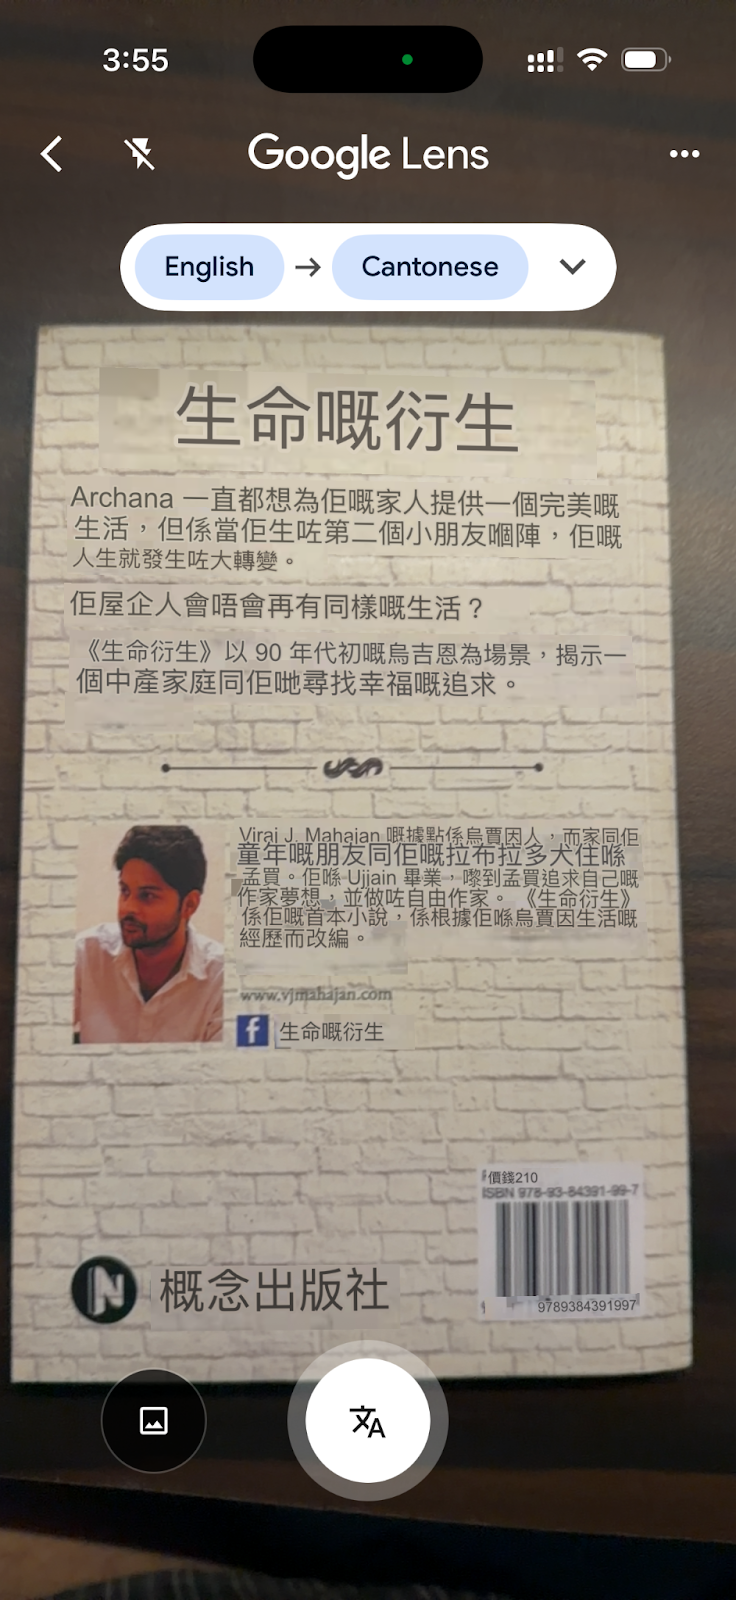 3:55
Google Lens
English → Cantonese
生命嘅衍生
Archana 一直都想為佢嘅家人提供一個完美嘅
生活，但係當佢生咗第二個小朋友嗰陣，佢嘅
人生就發生咗大轉變。
佢屋企人會唔會再有同樣嘅生活？
《生命衍生》以 90 年代初嘅烏吉恩為場景，揭示一
個中產家庭同佢哋尋找幸福嘅追求。
Viraj J. Mahajan 嘅據點係烏賈因人，而家同佢
童年嘅朋友同佢嘅拉布拉多犬住喺
孟買。佢喺 Ujjain 畢業，嚟到孟買追求自己嘅
作家夢想，並做咗自由作家。《生命衍生》
係佢嘅首本小說，係根據佢喺烏賈因生活嘅
經歷而改編。
www.vjmahajan.com
f 生命嘅衍生
價錢210
ISBN 978-93-84391-99-7
9789384391997
N 概念出版社
文A